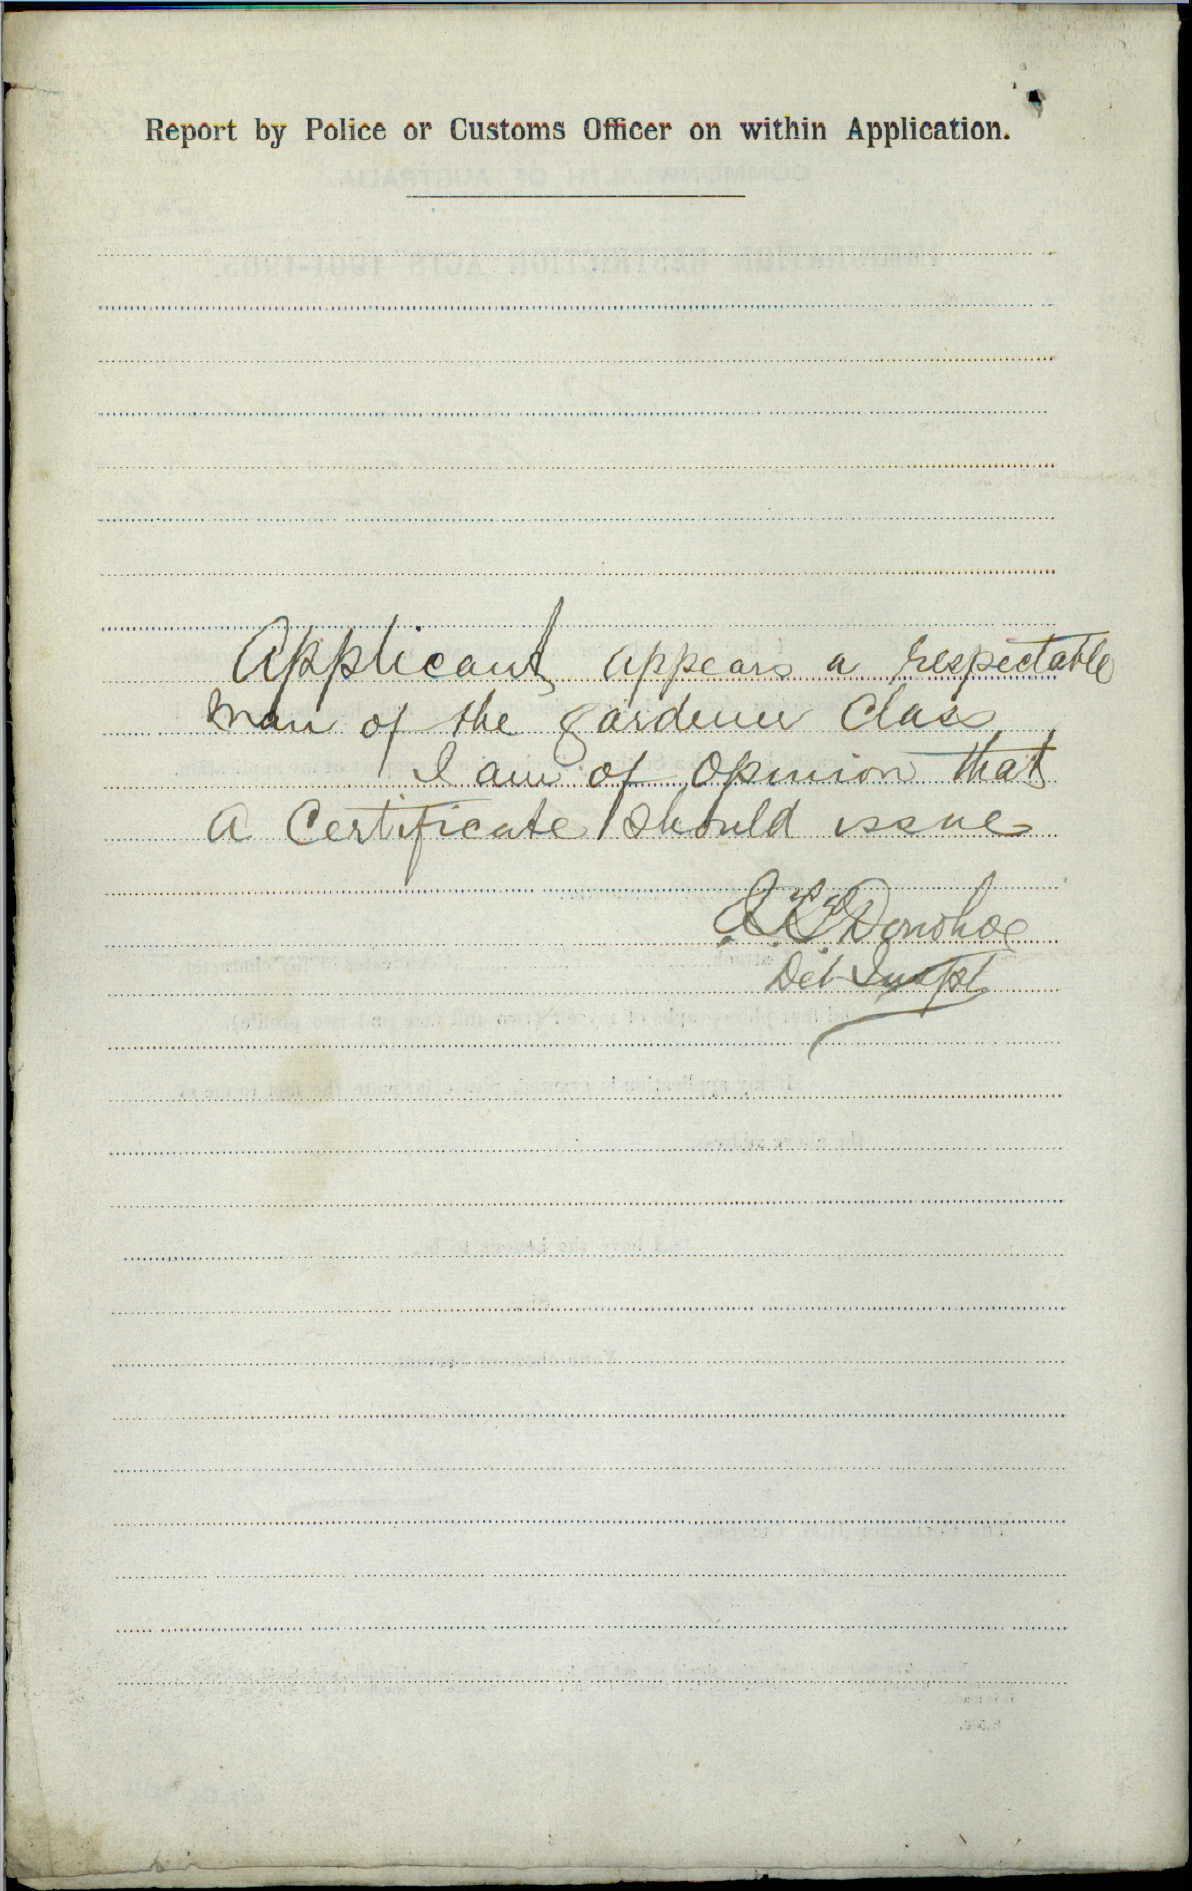 Report by Police or Customs Officer on within Application.
Applicant appears a respectable
man of the gardener Class
I am of Opinion that
a Certificate should issue
Donohoe
Det Inspt